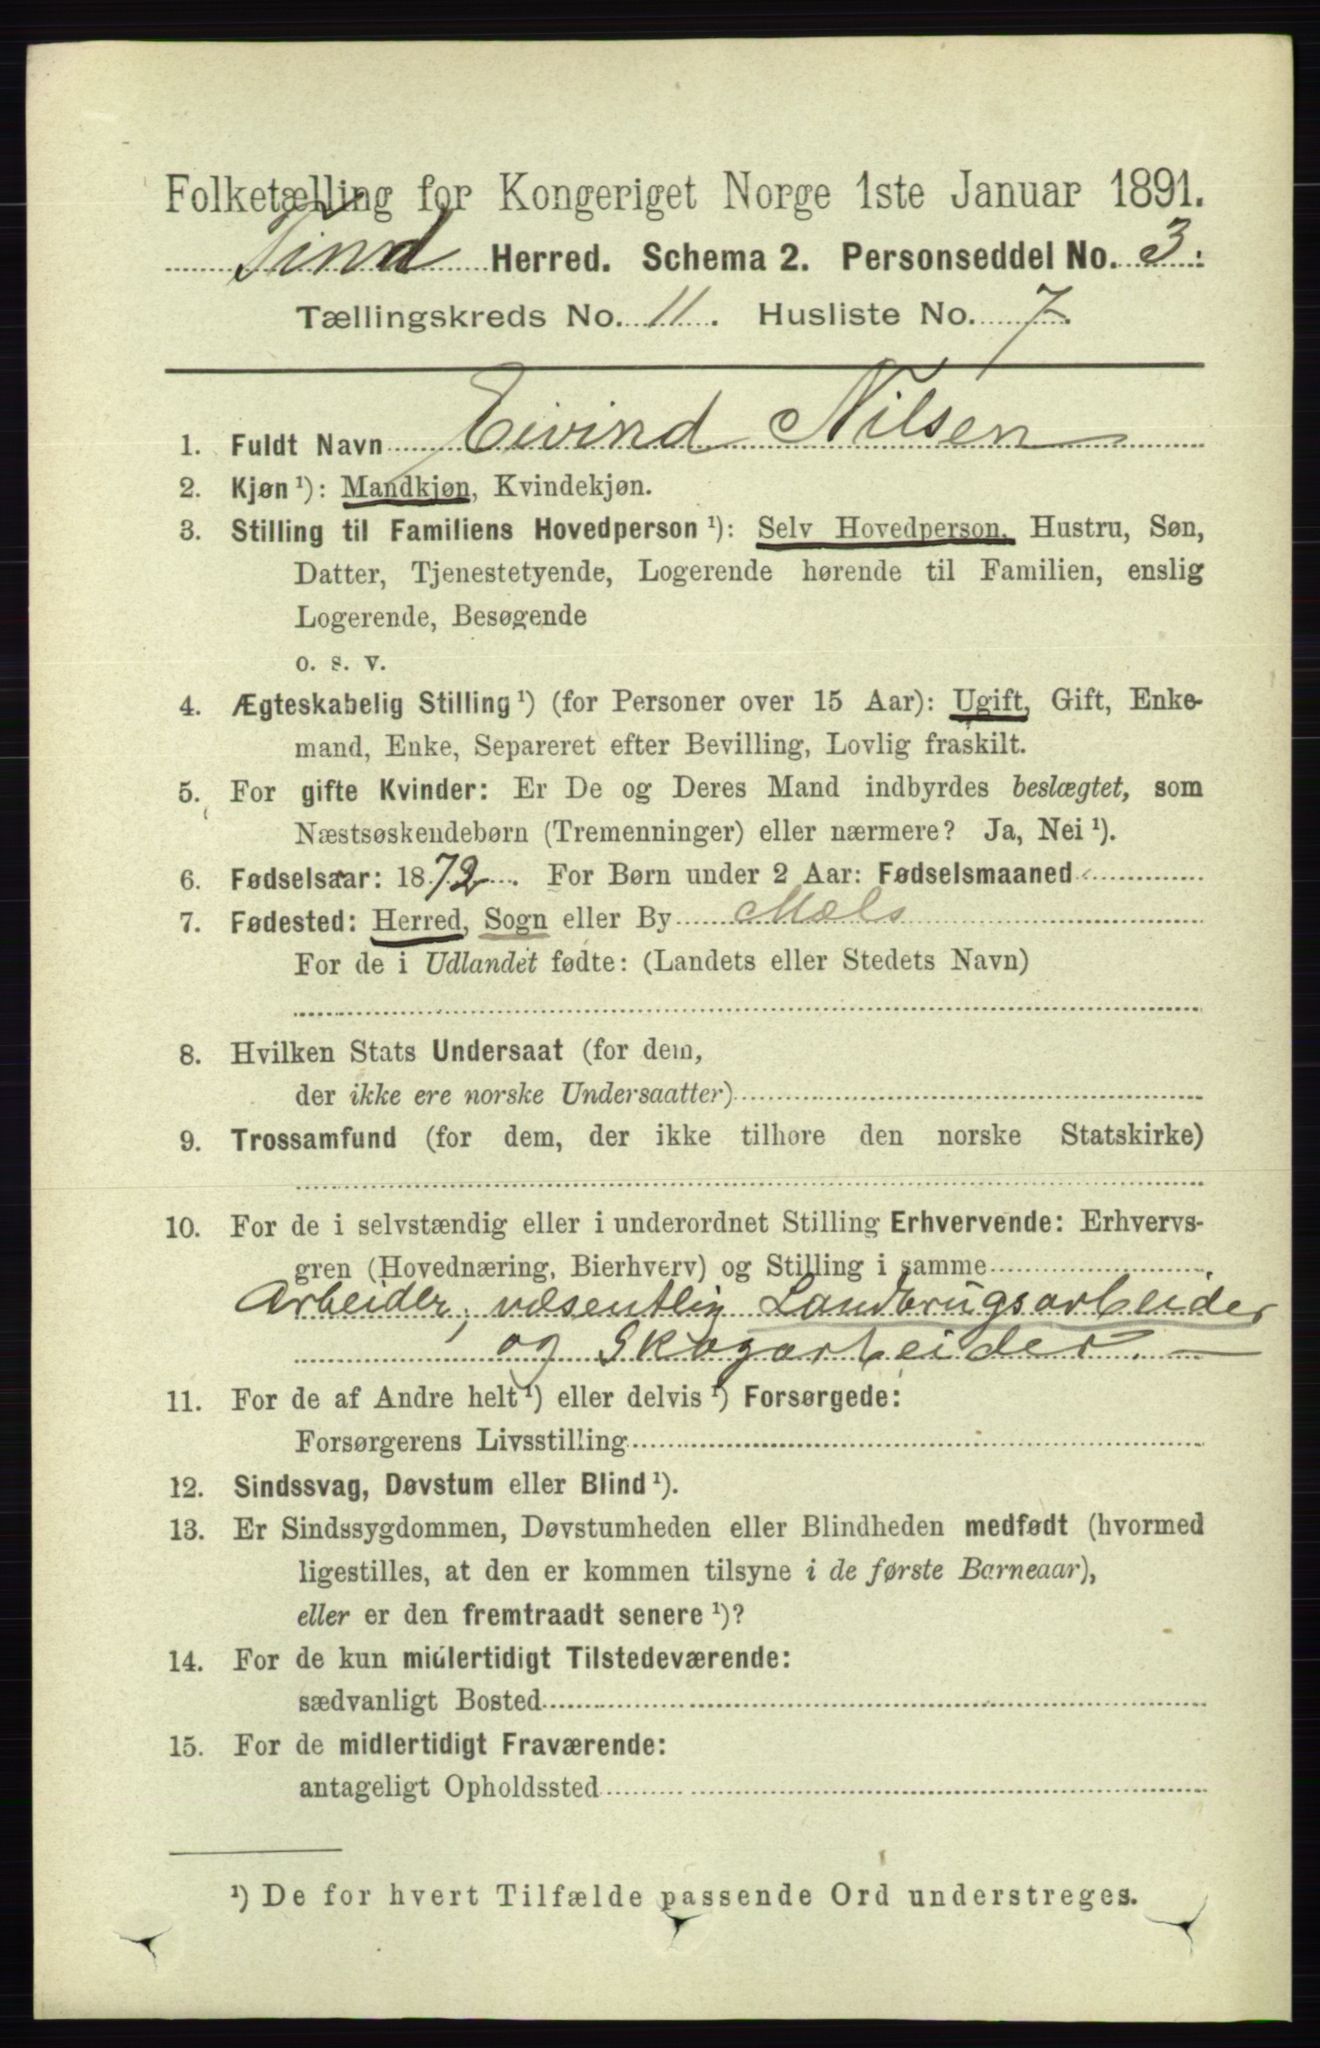 Folketælling for Kongeriget Norge 1ste Januar 1891.
Tind Herred. Schema 2. Personseddel No. 3.
Tællingskreds No. 11. Husliste No. 7.
1. Fuldt Navn Eivind Nilsen
2. Kjøn ¹): Mandkjøn, Kvindekjøn.
3. Stilling til Familiens Hovedperson ¹): Selv Hovedperson, Hustru, Søn,
Datter, Tjenestetyende, Logerende hørende til Familien, enslig
Logerende, Besøgende
o. s. v.
4. Ægteskabelig Stilling ¹) (for Personer over 15 Aar): Ugift, Gift, Enke-
mand, Enke, Separeret efter Bevilling, Lovlig fraskilt.
5. For gifte Kvinder: Er De og Deres Mand indbyrdes beslægtet, som
Næstsøskendebørn (Tremenninger) eller nærmere? Ja, Nei ¹).
6. Fødselsaar: 1872. For Børn under 2 Aar: Fødselsmaaned
7. Fødested: Herred, Sogn eller By Mæls
For de i Udlandet fødte: (Landets eller Stedets Navn)
8. Hvilken Stats Undersaat (for dem,
der ikke ere norske Undersaatter)
9. Trossamfund (for dem, der ikke tilhøre den norske Statskirke)
10. For de i selvstændig eller i underordnet Stilling Erhvervende: Erhvervs-
gren (Hovednæring, Bierhverv) og Stilling i samme
Arbeider, væsentlig Landbrugsarbeider
og Skogarbeider. —
11. For de af Andre helt ¹) eller delvis ¹) Forsørgede:
Forsørgerens Livsstilling
12. Sindssvag, Døvstum eller Blind ¹).
13. Er Sindssygdommen, Døvstumheden eller Blindheden medfødt (hvormed
ligestilles, at den er kommen tilsyne i de første Barneaar),
eller er den fremtraadt senere ¹)?
14. For de kun midlertidigt Tilstedeværende:
sædvanligt Bosted
15. For de midlertidigt Fraværende:
antageligt Opholdssted
¹) De for hvert Tilfælde passende Ord understreges.